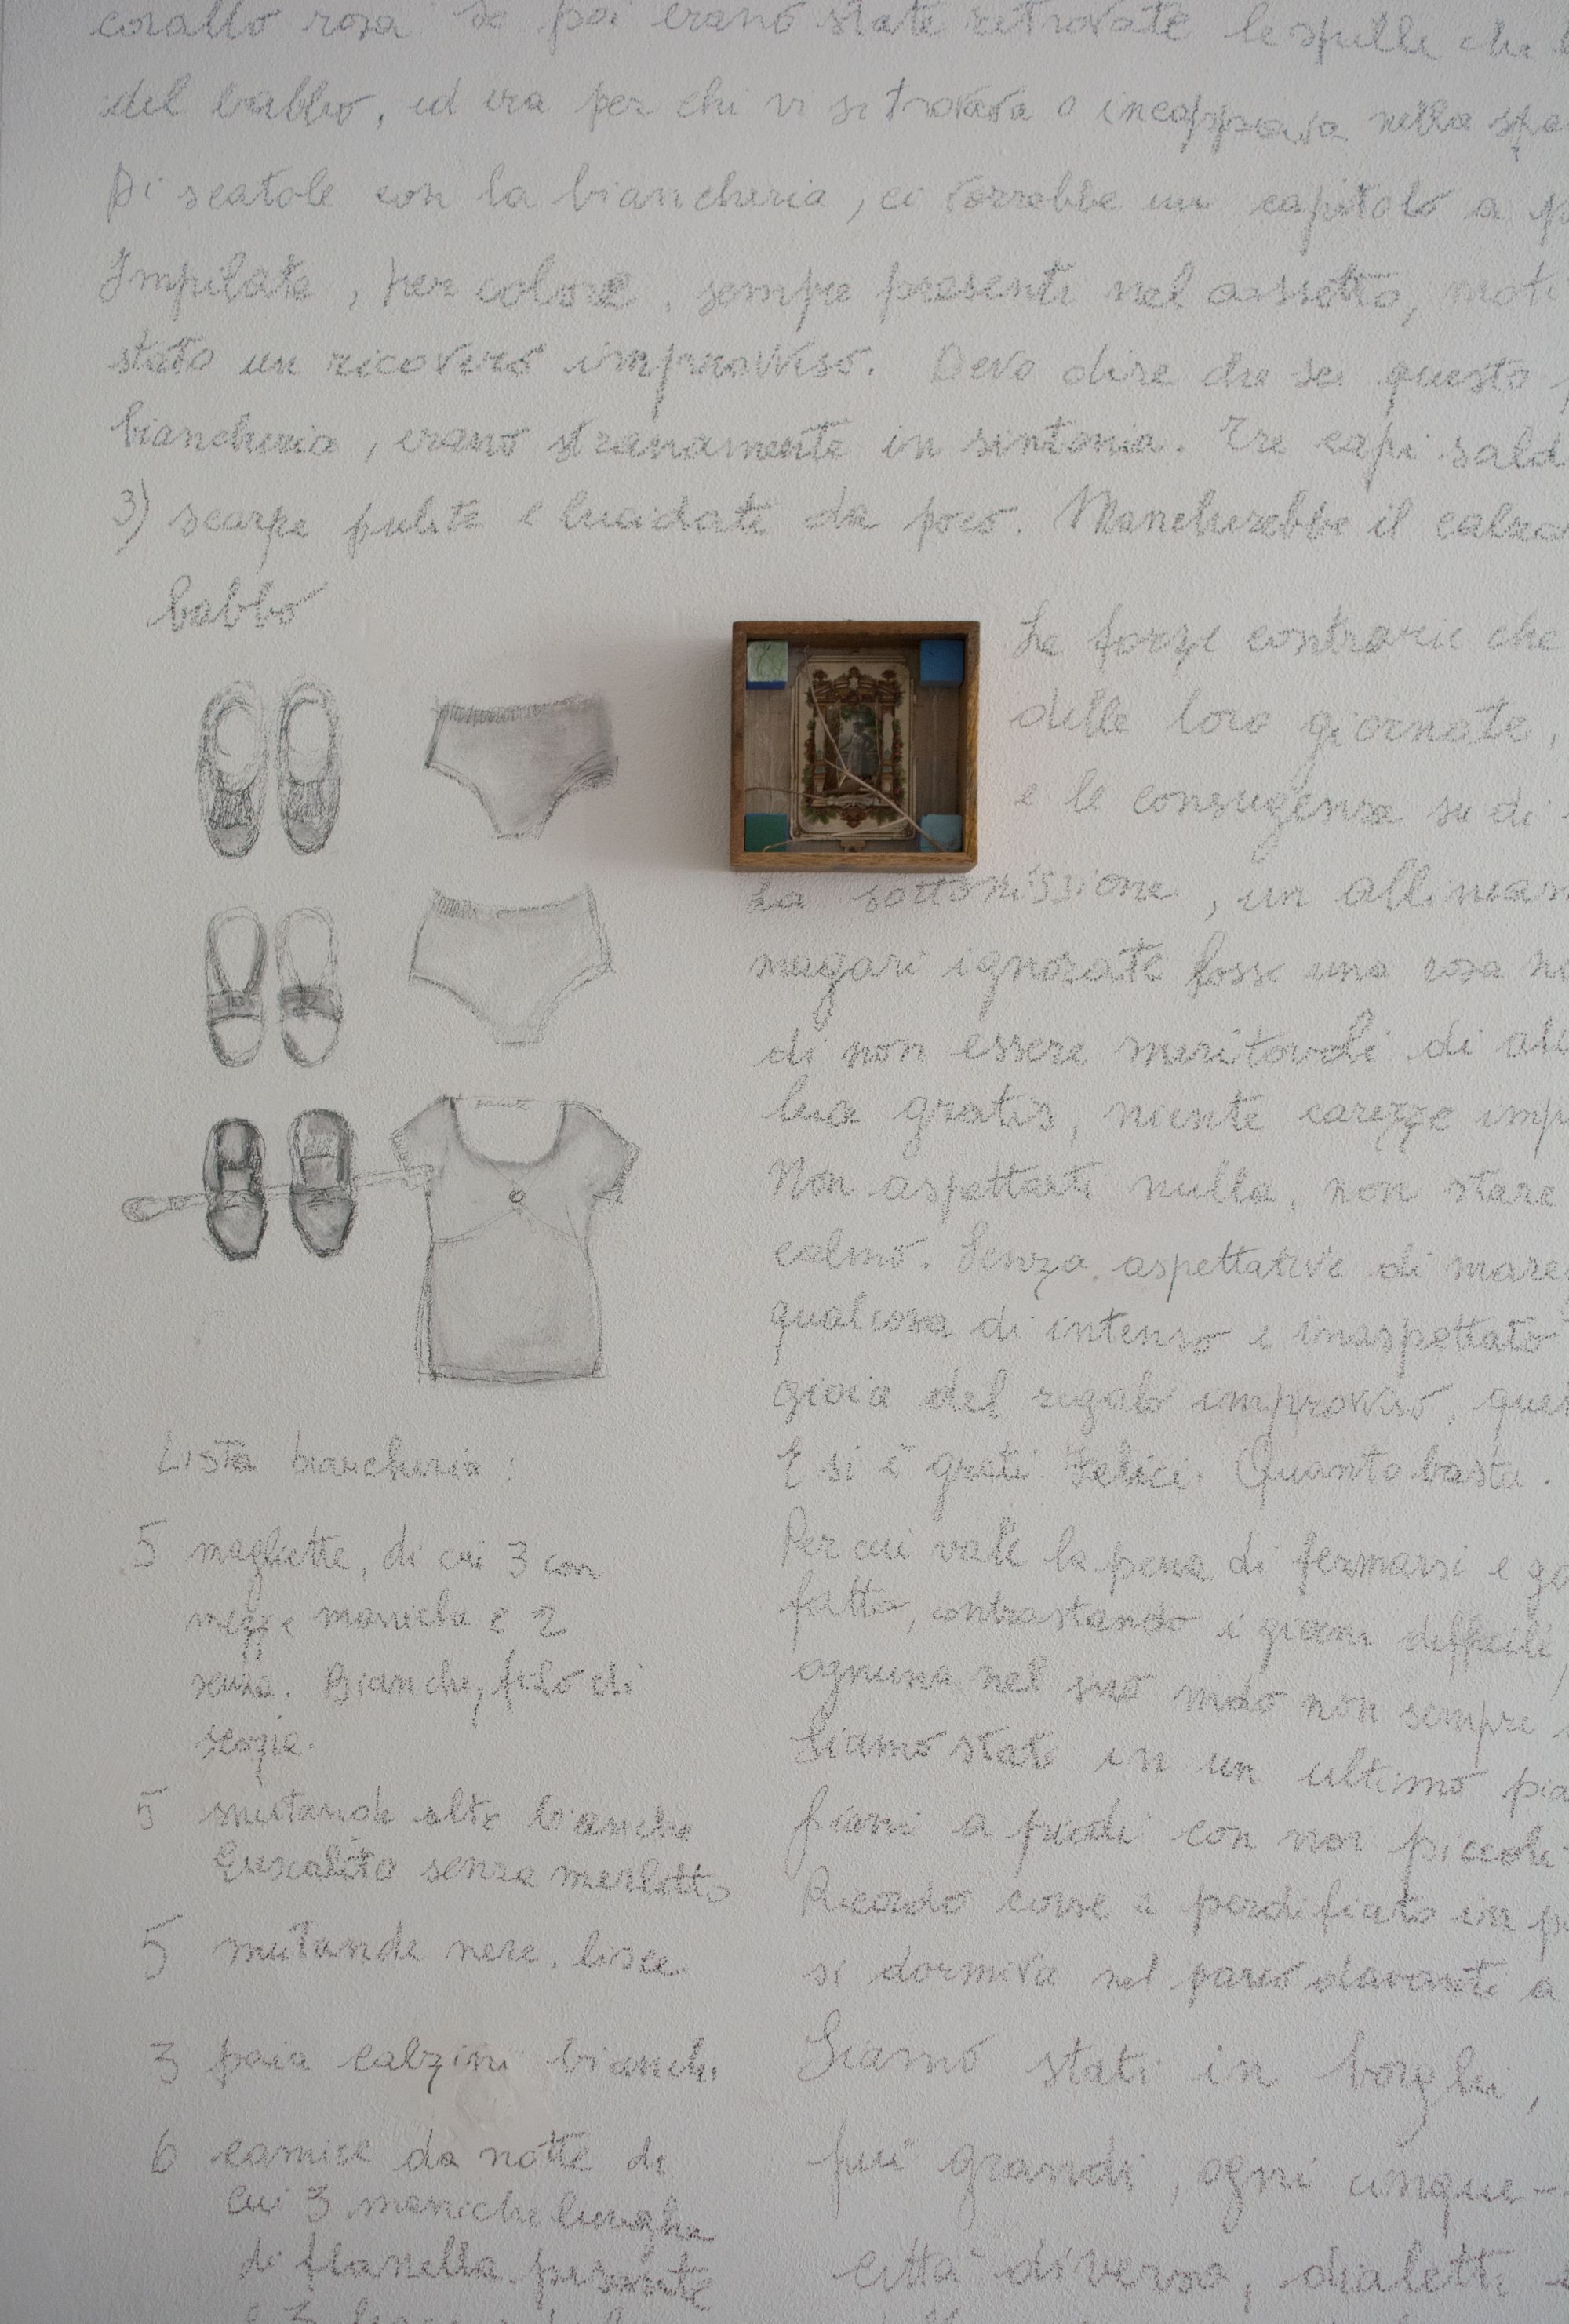 corallo rosa se poi erano state ritrovate le spille che
del babbo, ed era per chi vi si trovava o incappava nella
Di scatole con la biancheria, ci vorrebbe un capitolo a
Impilate, per colore, sempre presenti nel cassetto,
stato un ricovero improvviso. Devo dire che su questo
biancheria, erano stranamente in sintonia. Tre capi
3) scarpe pulite e lucidate da poco. Mancherebbe il
babbo
Le forze contrarie che
delle loro giornate,
e le conseguenze su di
La sottomissione, un
magari ignorate fosse una cosa
di non essere meritevoli di
lua gratis, niente carezze
Non aspettarti nulla, non stare
calmo. Senza aspettative di
qualcosa di intenso e inaspettato
gioia del regalo improvviso,
E si è grati. Felici. Quanto basta.
Per cui vale la pena di fermarsi e
fatto, contrastando i giorni difficili,
ognuna nel suo modo non sempre
Siamo stati in un ultimo
fiori a piedi con noi piccoli
Ricordo corse a perdifiato in
si dormiva nel parco davanti a
Siamo stati in borghi,
più grandi, ogni
città diverse, dialetti
Lista biancheria:
5 magliette, di cui 3 con
mezze maniche e 2
senza. Bianche, filo di
scozia.
5 mutande alte bianche
senza merletto
5 mutande nere. lisce.
3 paia calzini bianchi
6 camice da notte di
cui 3 maniche lunghe
di flanella pesante